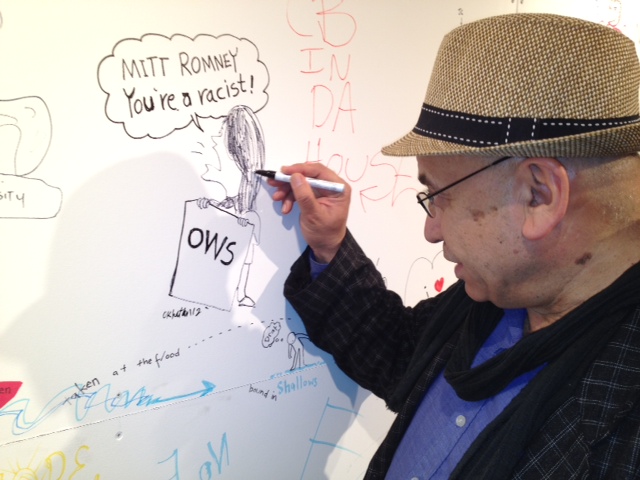 MITT ROMNEY
You're a racist!
B
IN
DA
HOUSE
SITY
OWS
taken at the flood
bound in
Shallows